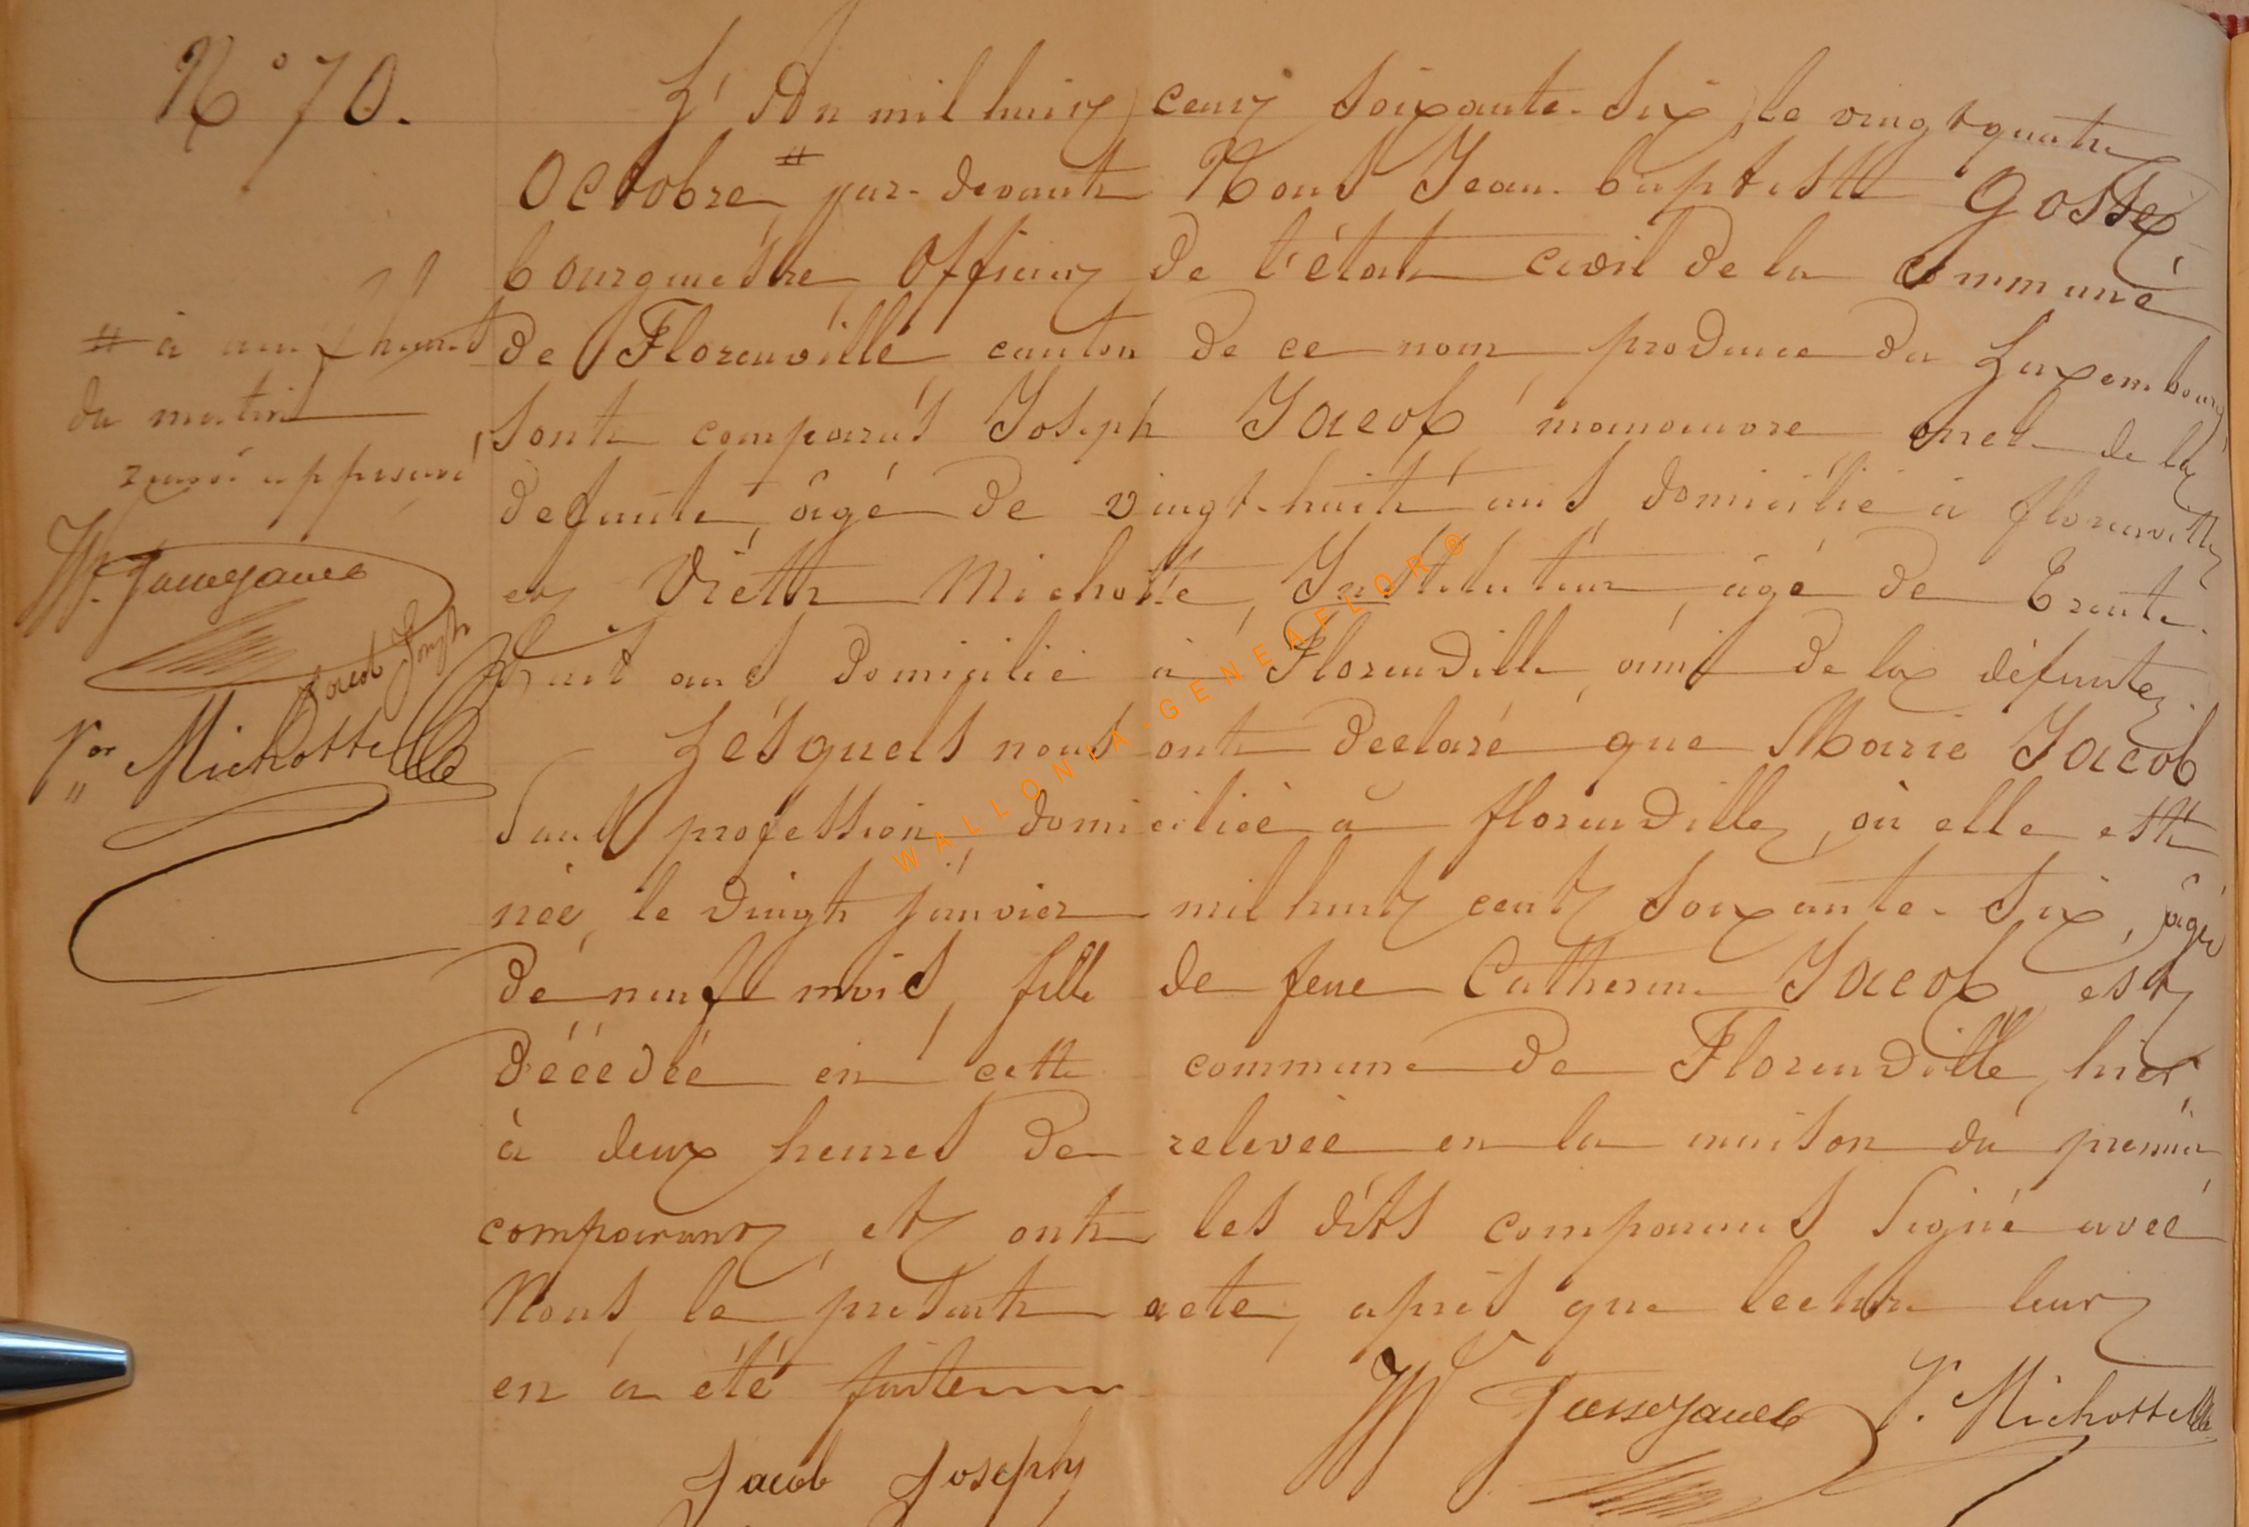 N° 70.
L'An mil huit cent soixante-six, le vingt quatre
Octobre # par-devant Nous Jean-baptiste Gosse
bourgmestre, Officier de l'état civil de la commune
de Florenville, canton de ce nom, province du Luxembourg,
sont comparus Joseph Jacob manoeuvre oncle de la
defunte, âgé de vingt-huit ans, domicilié à florenville
et Victor Michotte, Instituteur, âgé de Trente-
huit ans domicilié à Florenville, ami de la défunte.
Lésquels nous ont declaré que Marie Jacob
sans profession, domiciliée à florenville, où elle est
née, le vingt janvier mil huit cent soixante-six, âgée
de neuf mois, fille de feue Catherine Jacob, est
décédée en cette commune de Florenville, hier,
à deux heures de relevée en la maison du premier
comparant, et ont les dits comparans signé avec
Nous, le présent acte, après que lecture leur
en a été faite
# à neuf heures
du matin
renvoi approuvé
Jacob Joseph
Vor Michotte
V. Michotte
Jacob Joseph
WALLONIA-GENEAFLOR®